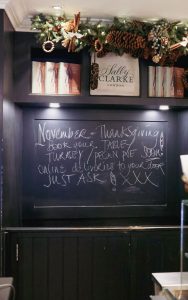 Sally
CLARKE
LONDON
November = Thanksgiving
BOOK YOUR TABLE
TURKEY / PECAN PIE SOON
online deliveries to your door
JUST ASK XXX